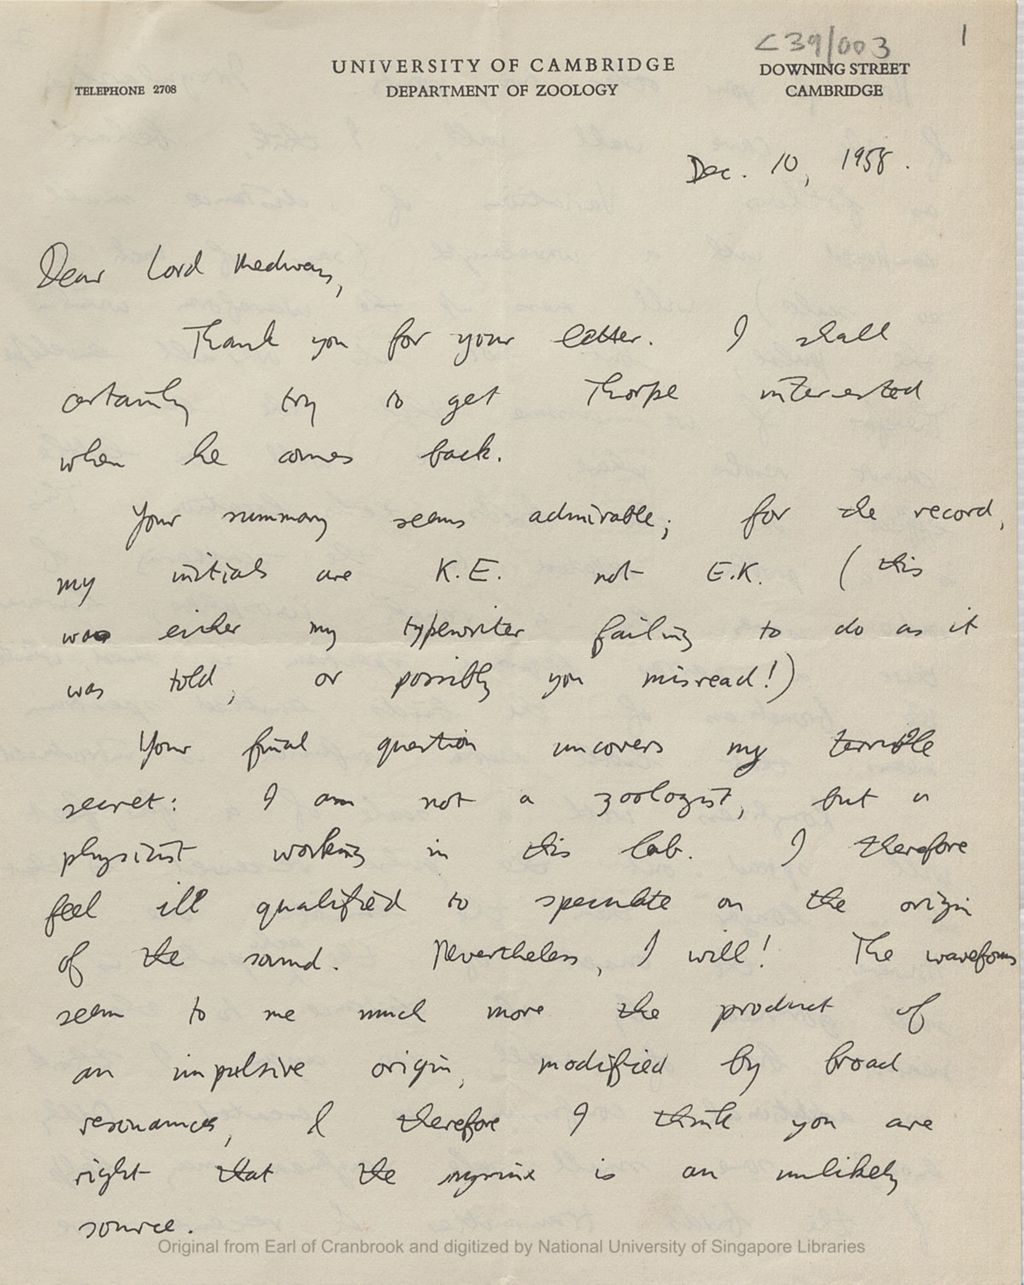 C39/003
1
UNIVERSITY OF CAMBRIDGE
DEPARTMENT OF ZOOLOGY
TELEPHONE 2708
DOWNING STREET
CAMBRIDGE
Dec. 10, 1958.
Dear Lord Medway,
Thank you for your letter. I shall
certainly try to get Thorpe interested
when he comes back.
Your summary seems admirable; for the record,
my initials are K.E. not E.K. (this
was either my typewriter failing to do as it
was told, or possibly you misread!)
Your final question uncovers my terrible
secret: I am not a zoologist, but a
physicist working in this lab. I therefore
feel ill qualified to speculate on the origin
of the sound. Nevertheless, I will! The waveforms
seem to me much more the product of
an impulsive origin, modified by broad
resonances, & therefore I think you are
right that the syrinx is an unlikely
source.
Original from Earl of Cranbrook and digitized by National University of Singapore Libraries